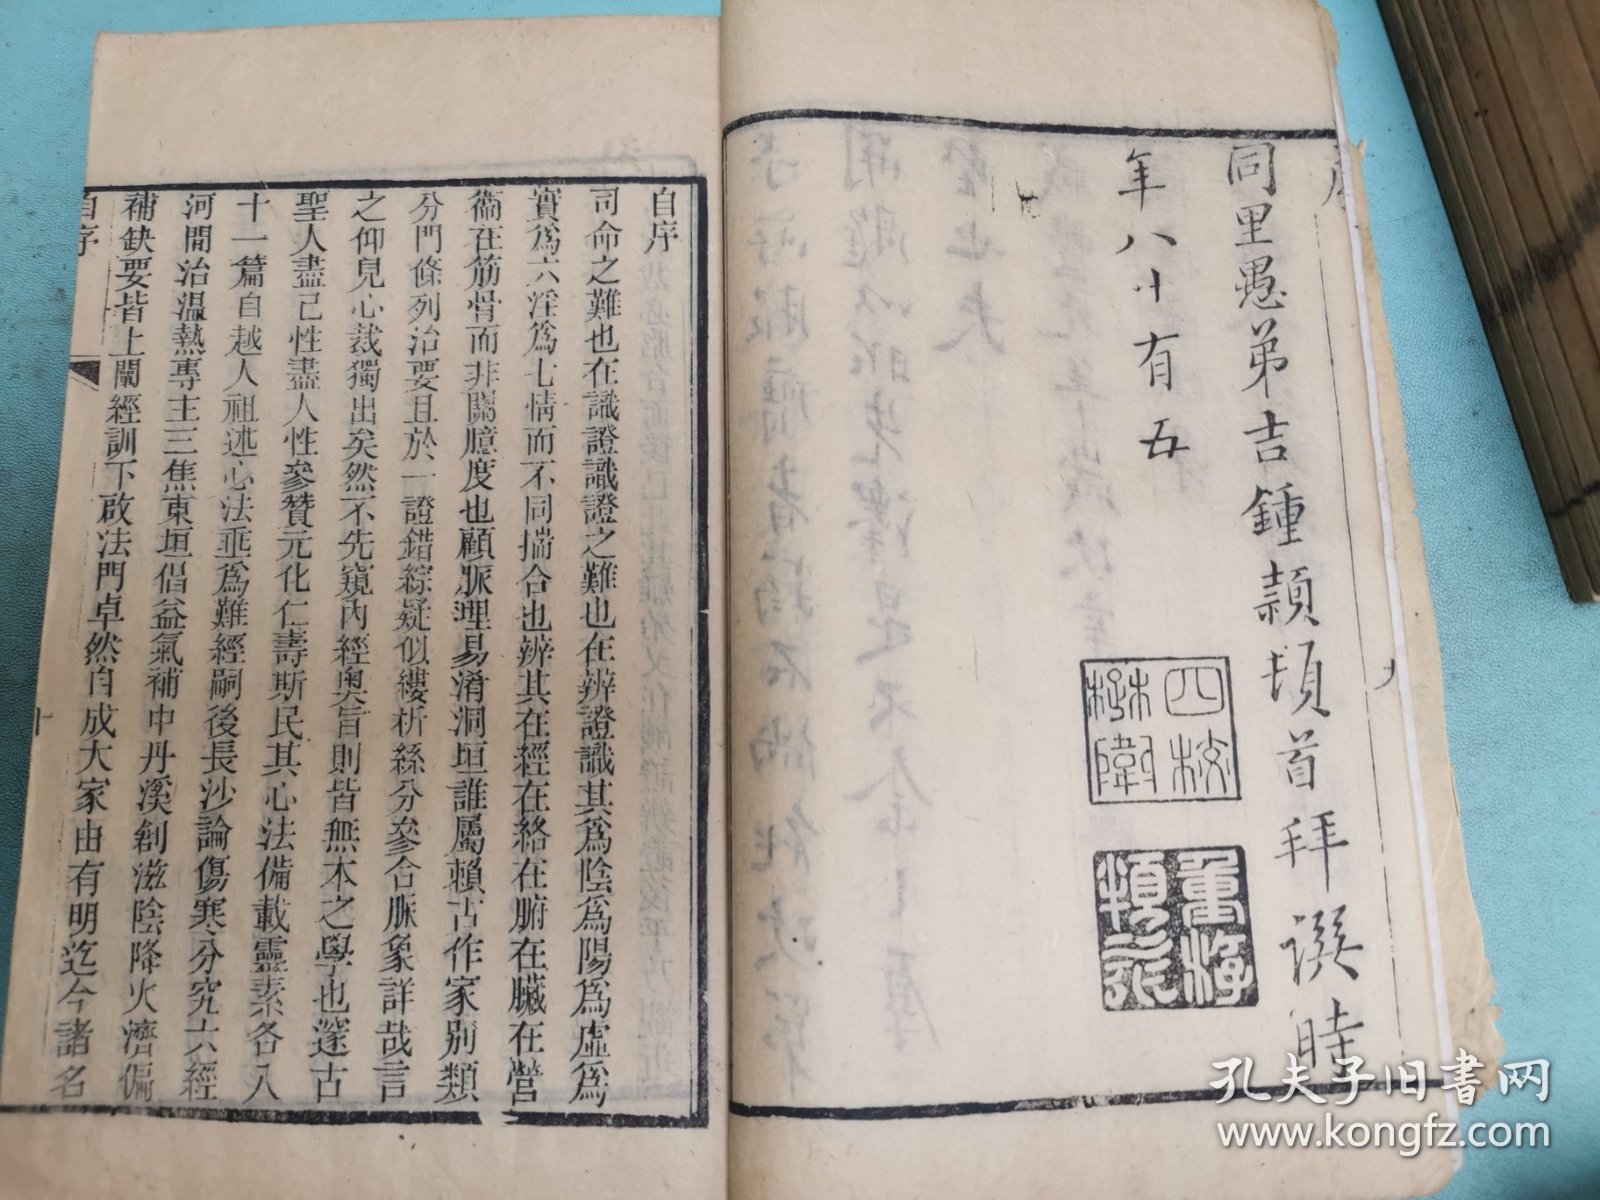 同里愚弟吉鍾穎頓首拜譔時
年八十有五
自序
司命之難也在識證識證之難也在辨證識其爲陰爲陽爲虛爲
實爲六淫爲七情而不同揣合也辨其在經在絡在腑在臟在營
衞在筋骨而非關臆度也顧脈理易淆洞垣誰屬賴古作家別類
分門條列治要且於一證錯綜疑似縷析絲分參合脈象詳哉言
之仰見心裁獨出矣然不先窺內經奧旨則皆無本之學也邃古
聖人盡己性盡人性參贊元化仁壽斯民其心法備載靈素各八
十一篇自越人祖述心法垂爲難經嗣後長沙論傷寒分究六經
河間治溫熱專主三焦東垣倡益氣補中丹溪創滋陰降火濟偏
補缺要皆上闡經訓下啟法門卓然自成大家由有明迄今諸名
自序
孔夫子旧书网
www.kongfz.com